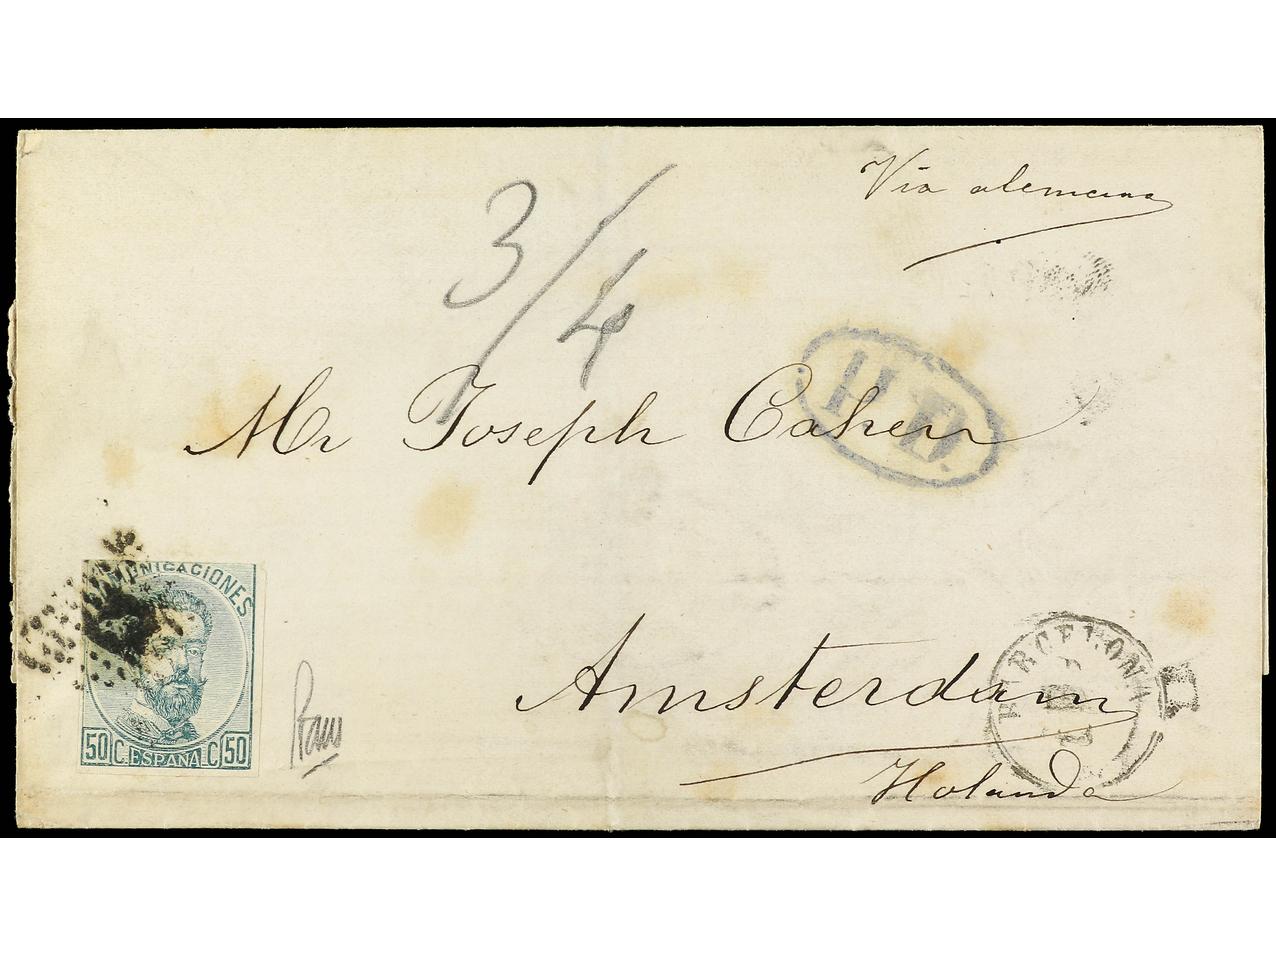 Via alemana
3/4
P.D.
Mr Joseph Cahen
COMUNICACIONES
50 C. ESPAÑA C 50
Amsterdam
BARCELONA
Holanda